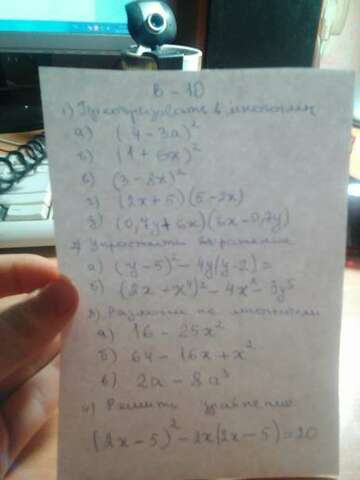 В - 10
1) Преобразовать в многочлен
а) (4 - 3a)²
б) (1 + 6x)²
в) (3 - 8x)²
г) (2x + 5)(5 - 2x)
д) (0,7y + 6x)(6x - 0,7y)
2) Упростить выражение
а) (y - 5)² - 4y(y - 2) =
б) (2x + x⁴)² - 4x² - 3y⁵
3) Разложи на множители
а) 16 - 25x²
б) 64 - 16x + x²
в) 2a - 8a³
4) Решить уравнение
(2x - 5)² - 2x(2x - 5) = 20